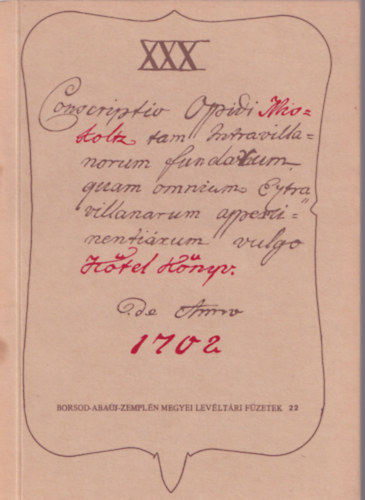 XXX
Conscriptio Oppidi Mis=
koltz tam Intravilla=
norum fundorum
quam omnium Extra
villanarum apperti=
nentiarum vulgo
Kötel Könyv.
de Anno
1702
BORSOD-ABAÚJ-ZEMPLÉN MEGYEI LEVÉLTÁRI FÜZETEK 22